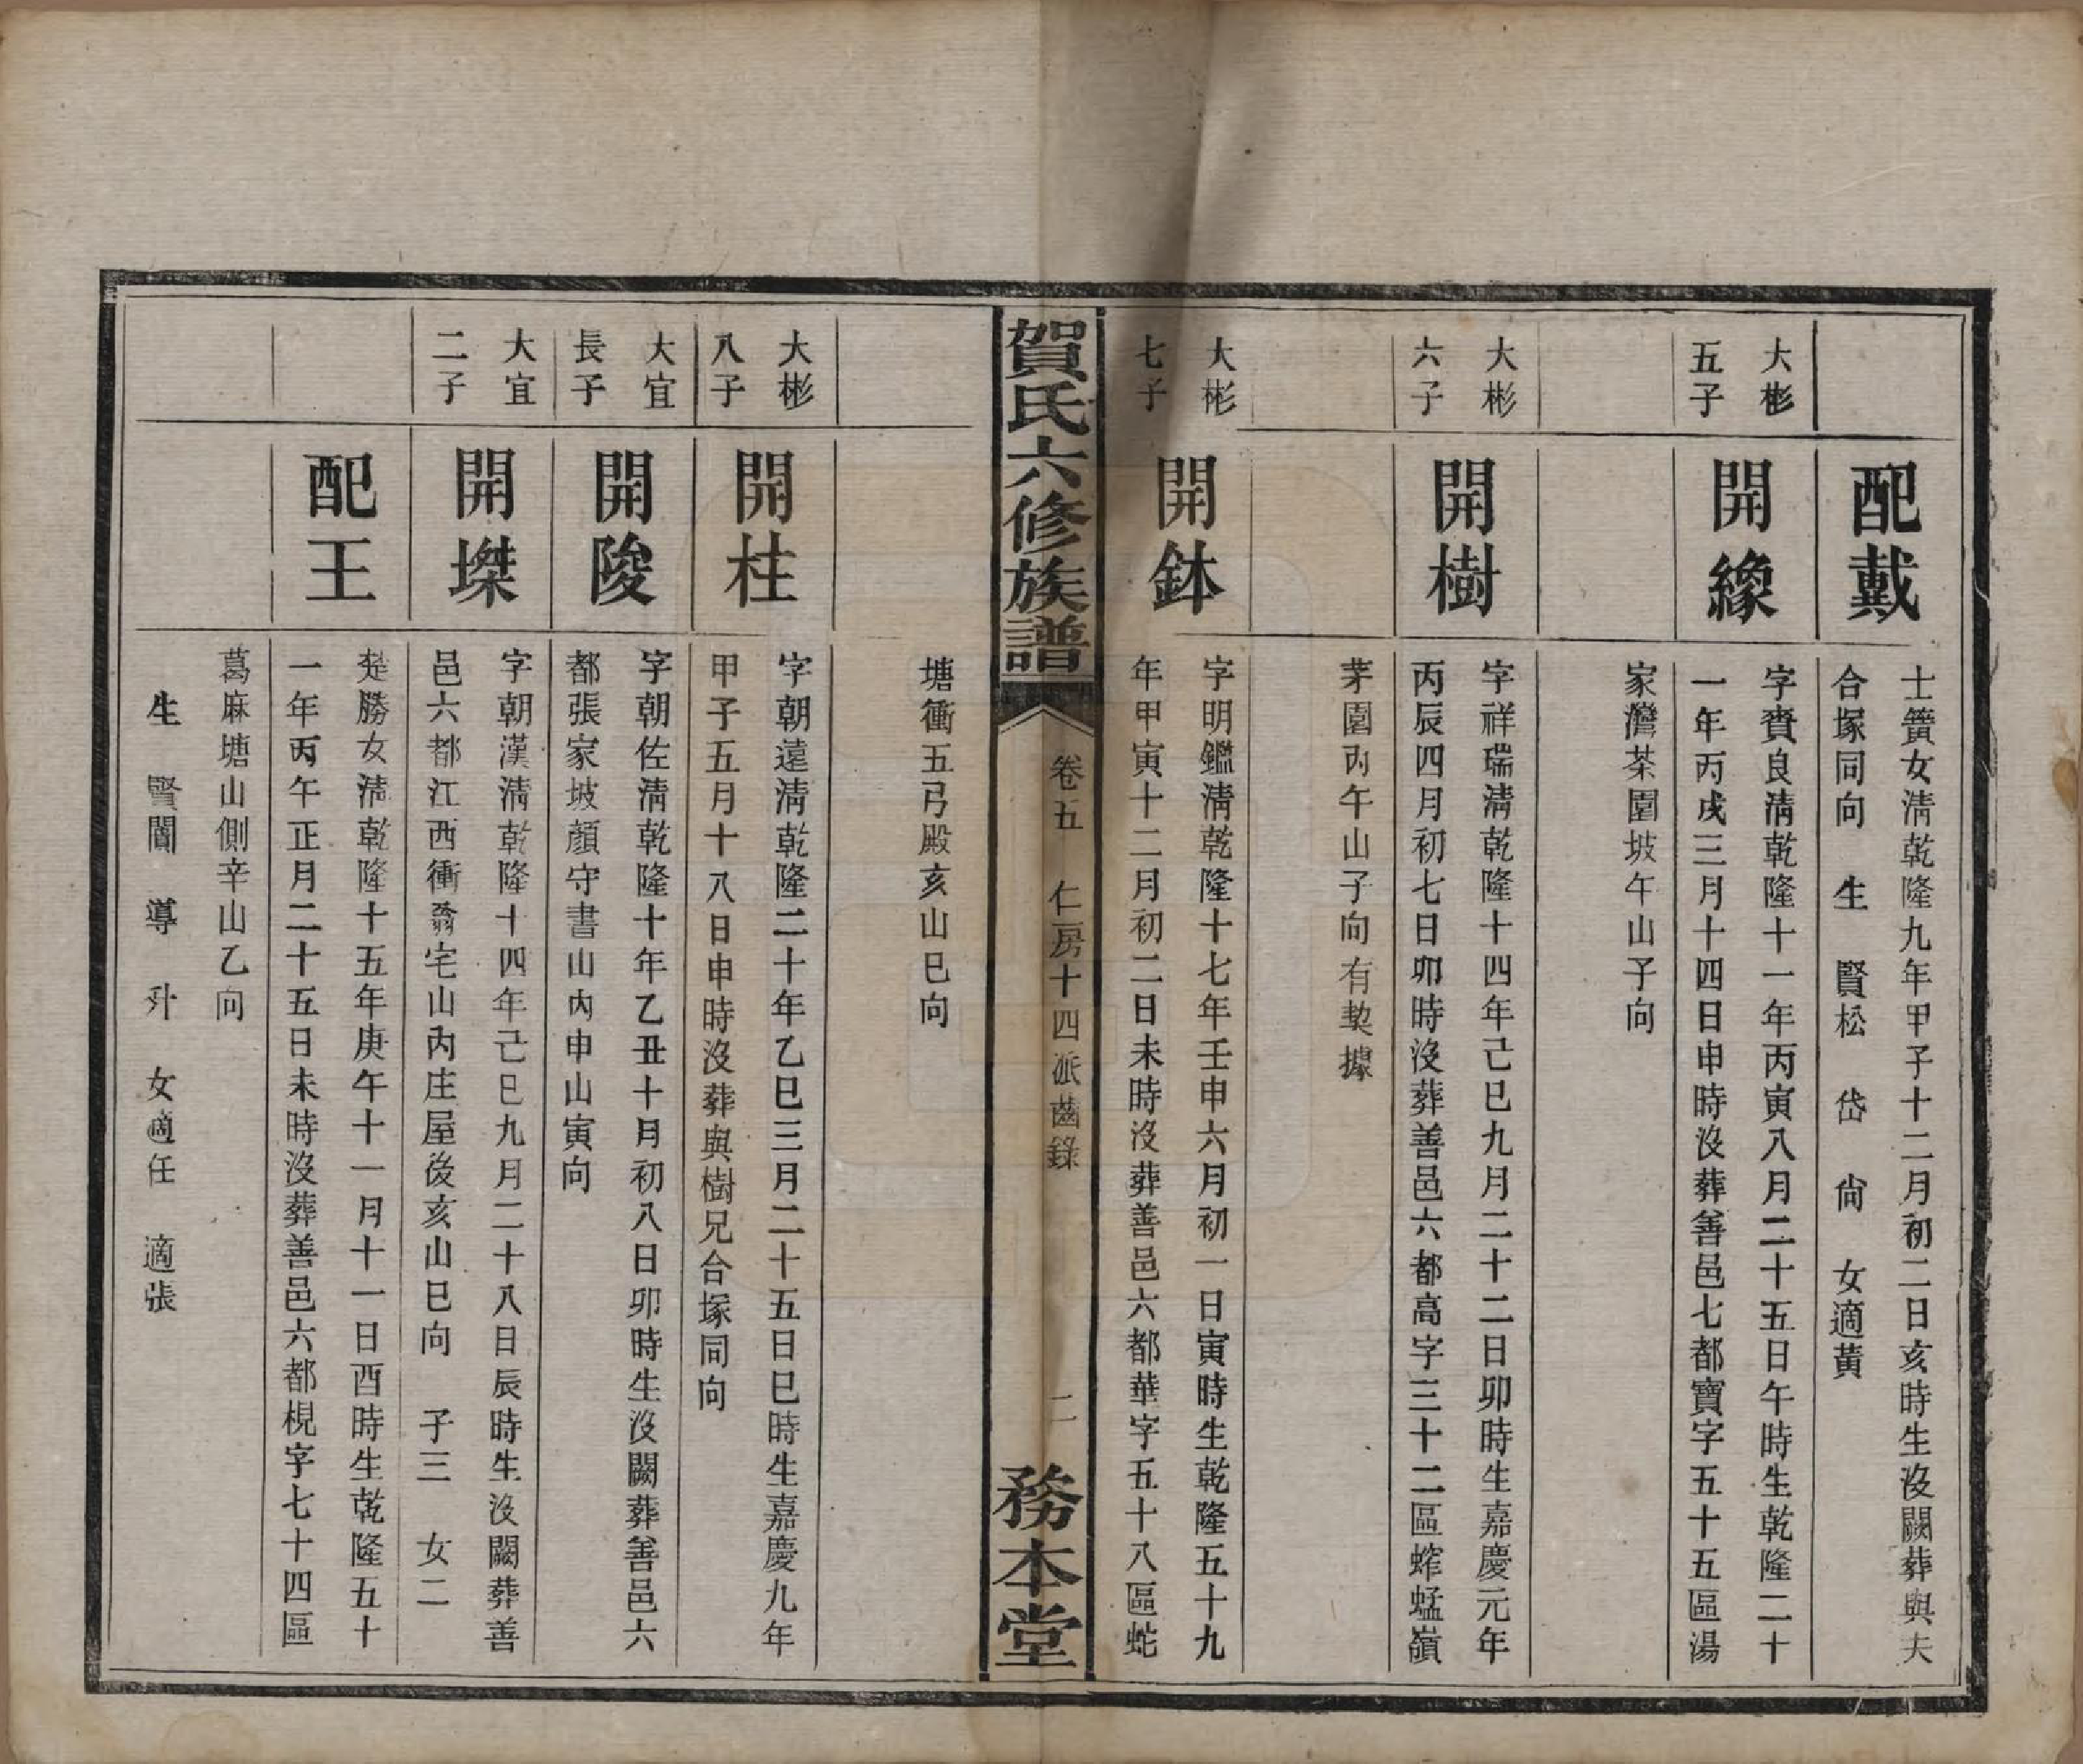 配戴
士簧女淸乾隆九年甲子十二月初二日亥時生沒闕葬與夫
合塚同向 生 賢松 岱 尙 女適黃
大彬
五子
開緣
字賚良淸乾隆十一年丙寅八月二十五日午時生乾隆二十
一年丙戌三月十四日申時沒葬善邑七都寶字五十五區湯
家灣茶園坡午山子向
大彬
六子
開樹
字祥瑞淸乾隆十四年己巳九月二十二日卯時生嘉慶元年
丙辰四月初七日卯時沒葬善邑六都高字三十二區蚱蜢嶺
茅園丙午山子向有契據
大彬
七子
開鉢
字明鑑淸乾隆十七年壬申六月初一日寅時生乾隆五十九
年甲寅十二月初二日未時沒葬善邑六都華字五十八區蛇
賀氏六修族譜
卷五 仁房十四派齒錄
二
務本堂
塘衝五弓殿亥山巳向
大彬
八子
開柱
字朝遠淸乾隆二十年乙巳三月二十五日巳時生嘉慶九年
甲子五月十八日申時沒葬與樹兄合塚同向
大宜
長子
開陖
字朝佐淸乾隆十年乙丑十月初八日卯時生沒闕葬善邑六
都張家坡顏守書山內申山寅向
大宜
二子
開墚
字朝漢淸乾隆十四年己巳九月二十八日辰時生沒闕葬善
邑六都江西衝翁宅山內庄屋後亥山巳向 子三 女二
配王
楚勝女淸乾隆十五年庚午十一月十一日酉時生乾隆五十
一年丙午正月二十五日未時沒葬善邑六都梘字七十四區
葛麻塘山側辛山乙向
生 賢闓 導 升 女適任 適張